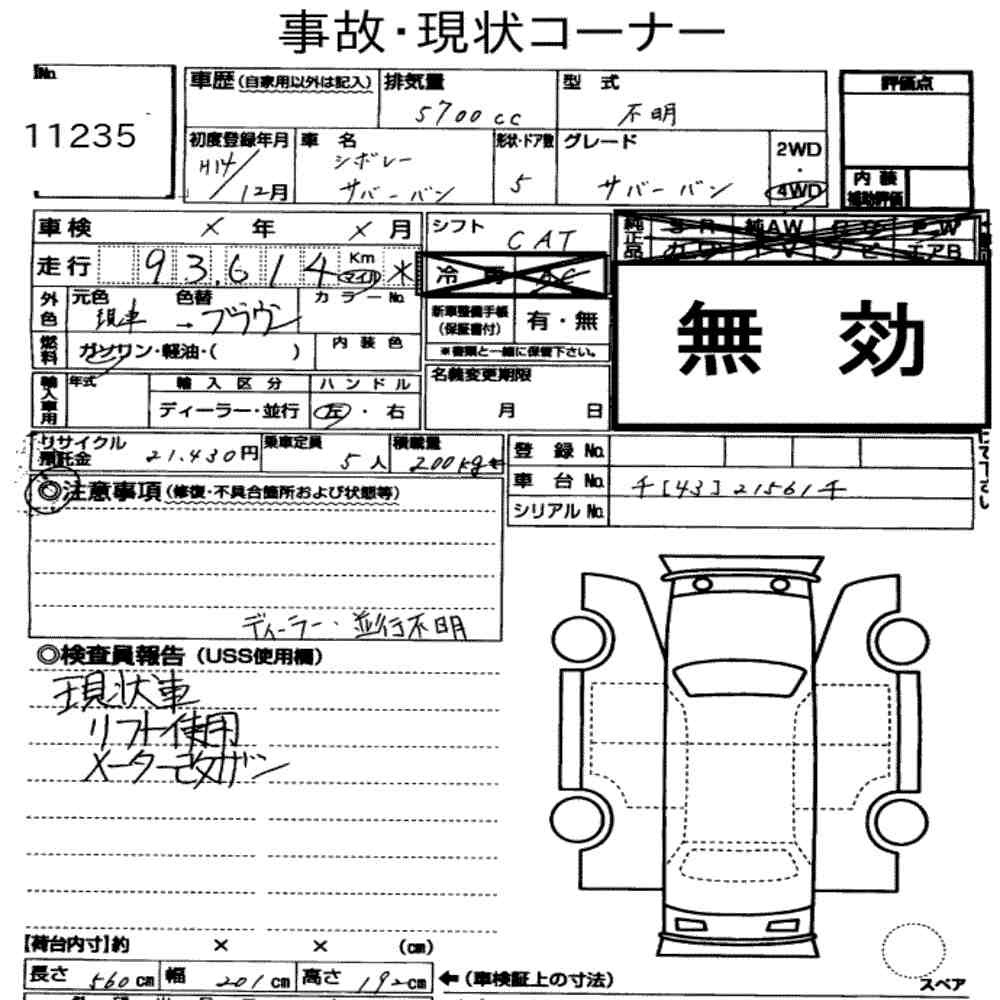 事故・現状コーナー
No.
11235
車歴(自家用以外は記入)
排気量
5700cc
型式
不明
評価点
初度登録年月
H14/12月
車名
シボレー
サバーバン
形状・ドア数
5
グレード
サバーバン
2WD
・
4WD
内装
補助評価
車検 × 年 × 月
シフト
CAT
純正品
S R
純AW
P W
エアB
走行 93,614 Km マイル *
冷房
AC
無効
外色
元色
現車
色替
→ブラウン
カラーNo.
新車整備手帳
(保証書付)
有・無
※書類と一緒に保管下さい。
燃料
ガソリン・軽油・( )
内装色
輸入車用
年式
輸入区分
ディーラー・並行
ハンドル
左・右
名義変更期限
月 日
リサイクル
預託金
21.430円
乗車定員
5人
積載量
200kg
登録No.
車台No.
千[43]21561千
シリアルNo.
◎注意事項(修復・不具合箇所および状態等)
ディーラー・並行不明
◎検査員報告(USS使用欄)
現状車
リフト使用
メーター改ザン
【荷台内寸】約 × × (cm)
長さ 560cm 幅 201cm 高さ 192cm ←(車検証上の寸法)
スペア